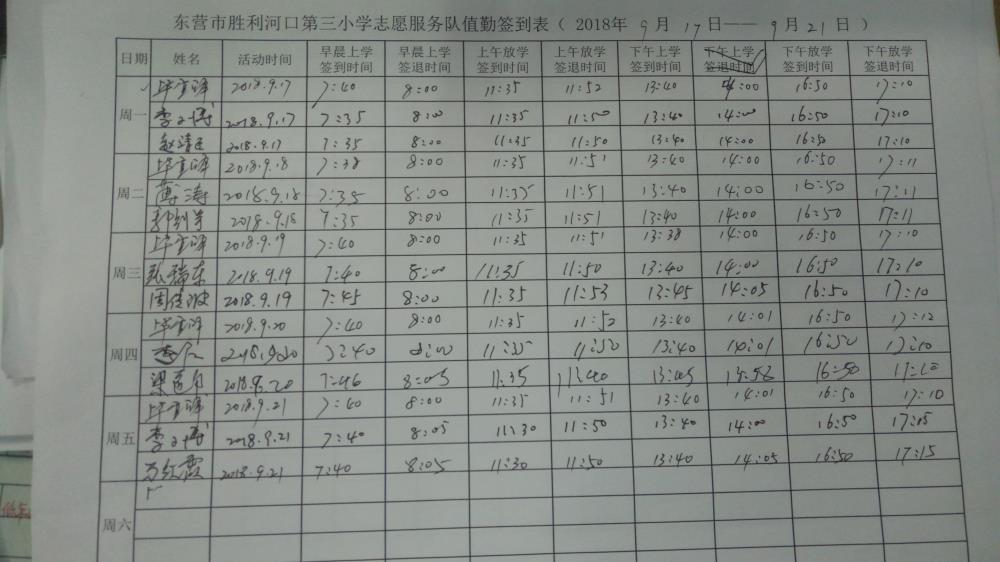 东营市胜利河口第三小学志愿服务队值勤签到表（ 2018年 9 月 17 日—— 9 月 21 日 ）
日期 姓名 活动时间 早晨上学签到时间 早晨上学签退时间 上午放学签到时间 上午放学签退时间 下午上学签到时间 下午上学签退时间 下午放学签到时间 下午放学签退时间
2018.9.17 7:40 8:00 11:35 11:52 13:40 14:00 16:50 17:10
周一 2018.9.17 7:35 8:00 11:35 11:50 13:40 14:00 16:50 17:10
2018.9.17 7:35 8:00 11:35 11:50 13:40 14:00 16:50 17:10
2018.9.18 7:38 8:00 11:35 11:51 13:40 14:00 16:50 17:11
周二 薄涛 2018.9.18 7:35 8:00 11:35 11:51 13:40 14:00 16:50 17:11
2018.9.18 7:35 8:00 11:35 11:51 13:40 14:00 16:50 17:11
2018.9.19 7:40 8:00 11:35 11:51 13:38 14:00 16:50 17:10
周三 2018.9.19 7:40 8:00 11:35 11:50 13:40 14:00 16:50 17:10
2018.9.19 7:45 8:00 11:35 11:53 13:45 14:05 16:50 17:10
2018.9.20 7:40 8:00 11:35 11:52 13:40 14:01 16:50 17:12
周四 2018.9.20 7:40 8:00 11:35 11:50 13:40 14:01 16:50 17:10
2018.9.20 7:46 8:05 11:35 13:45 13:58 16:50
2018.9.21 7:40 8:00 11:35 11:51 13:40 14:01 16:50 17:10
周五 2018.9.21 7:40 8:05 11:30 11:50 13:40 14:00 16:50 17:15
2018.9.21 7:40 8:05 11:30 11:50 13:40 14:05 16:50 17:15
周六